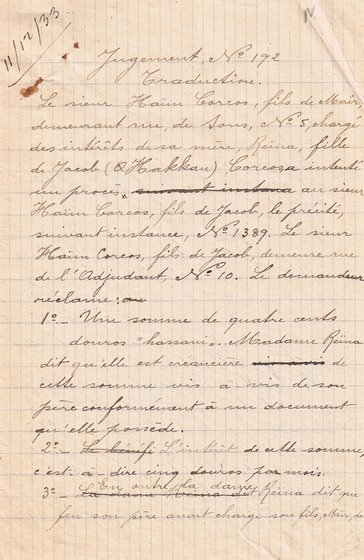 11/12/33
Jugement, No 192
Traduction.
Le sieur Haïm Corcos, fils de Maïr,
demeurant rue, de Sous, No 5, chargé
des intérêts de sa mère, Reïna, fille
de Jacob (Q Hakkan) Corcos, a intenté
un procès, suivant instance au sieur
Haïm Corcos, fils de Jacob, le précité,
suivant instance, No 1389. Le sieur
Haïm Corcos, fils de Jacob, demeure rue
de l'Adjudant, No 10. Le demandeur
réclame :
1o_ Une somme de quatre cents
douros "hassani". Madame Reïna
dit qu'elle est créancière de
cette somme vis à vis de son
père conformément à un document
qu'elle possède.
2o_ Le bénéfi L'intérêt de cette somme,
c'est-à-dire cinq douros par mois.
En outre, la dame
3o_ La dame Reïna dit Reïna dit que
feu son père avait chargé son fils, Maïr, de